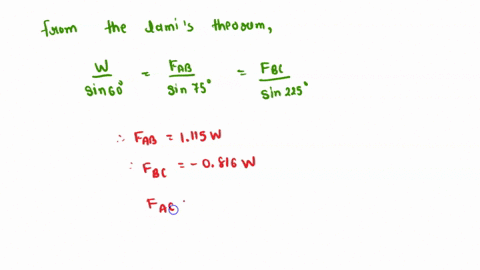 from the lami's theorem,
W/sin60° = FAB/sin 75° = FBC/sin 225°
∴ FAB = 1.115 W
∴ FBC = - 0.816 W
FAB